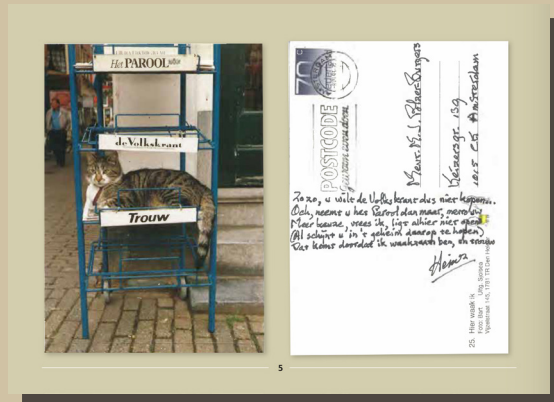 Het PAROOL
de Volkskrant
Trouw
70
POSTCODE
Mevr. M.J. Polner-Burgers
Keizersgr. 139
1015 CG Amsterdam
Zozo, u wilt de Volkskrant dus niet kopen...
Och, neemt u het Parool dan maar, mevrouw
Meer keuze, vrees ik, ligt alhier niet open
(Al schijnt u in 't geheim daarop te hopen)
Dat komt doordat ik waakzaam ben, en trouw
25. Hier waak ik
Foto: Bart
Uitg.
1781 TR Den
5